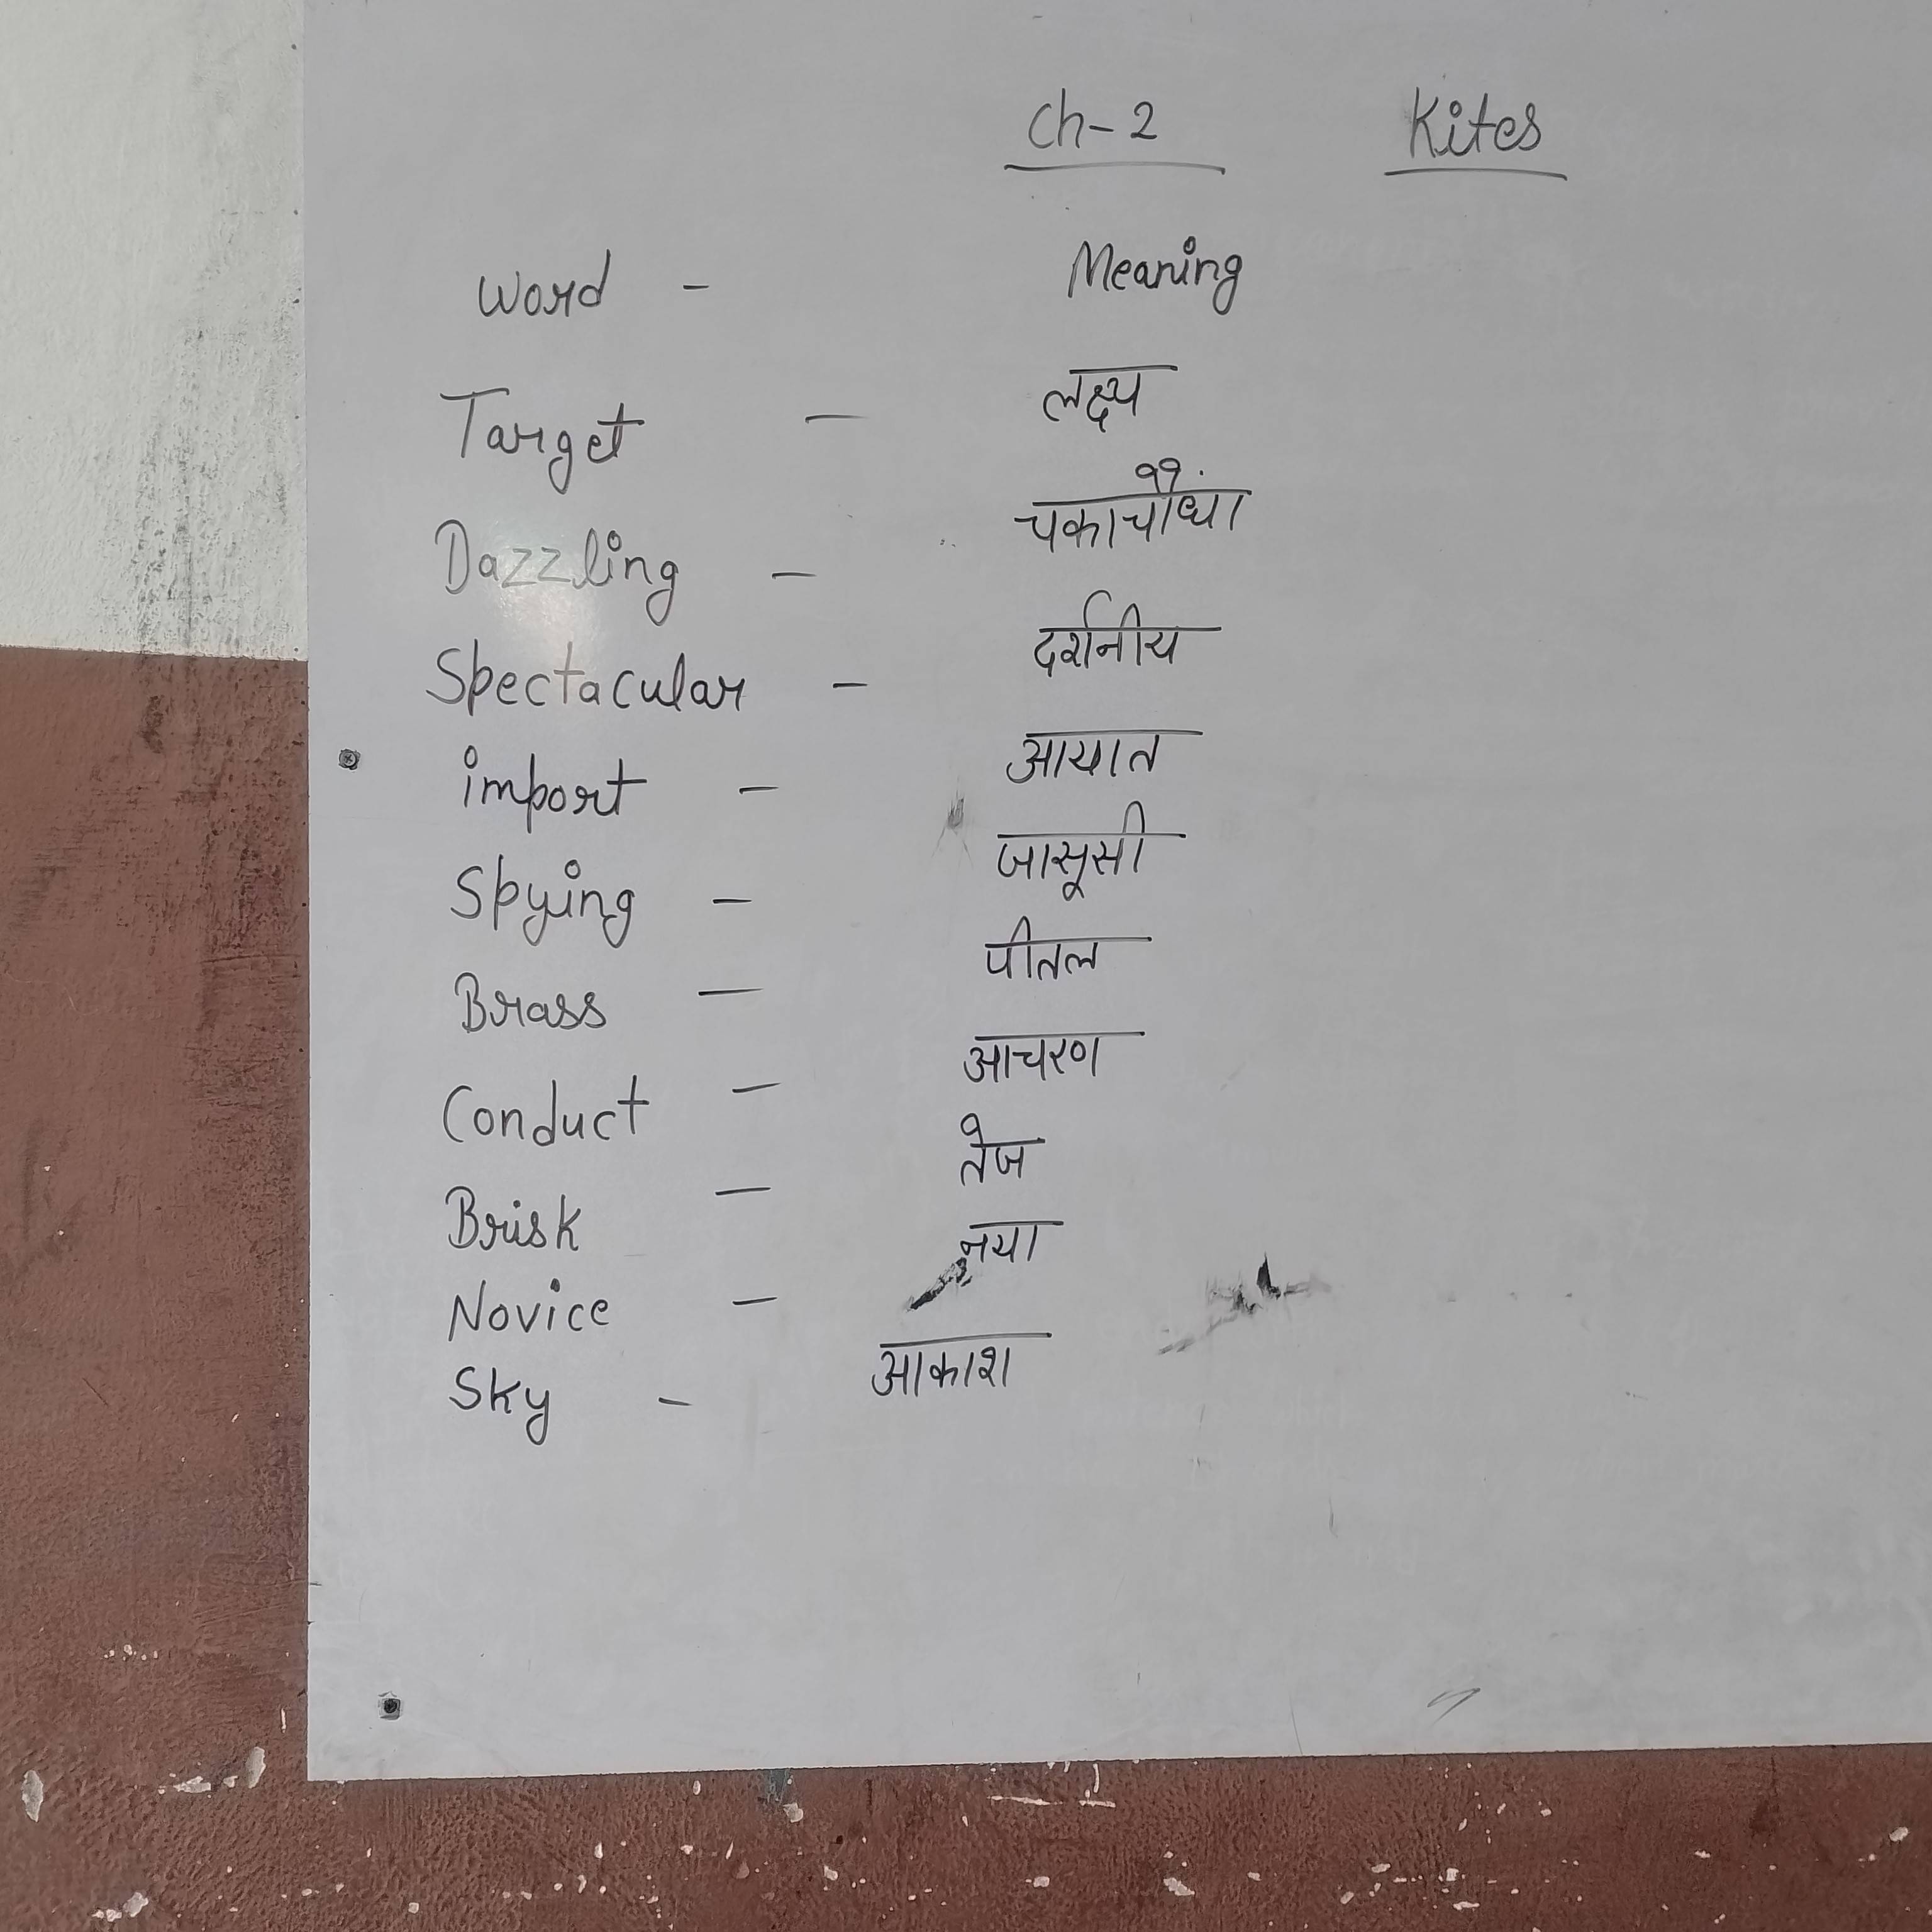 Ch-2 Kites
Word - Meaning
Target - लक्ष्य
Dazzling - चकाचौधां
Spectacular - दर्शनीय
import - आयात
Spying - जासूसी
Brass - पीतल
Conduct - आचरण
Brisk - तेज
Novice - नया
Sky - आकाश